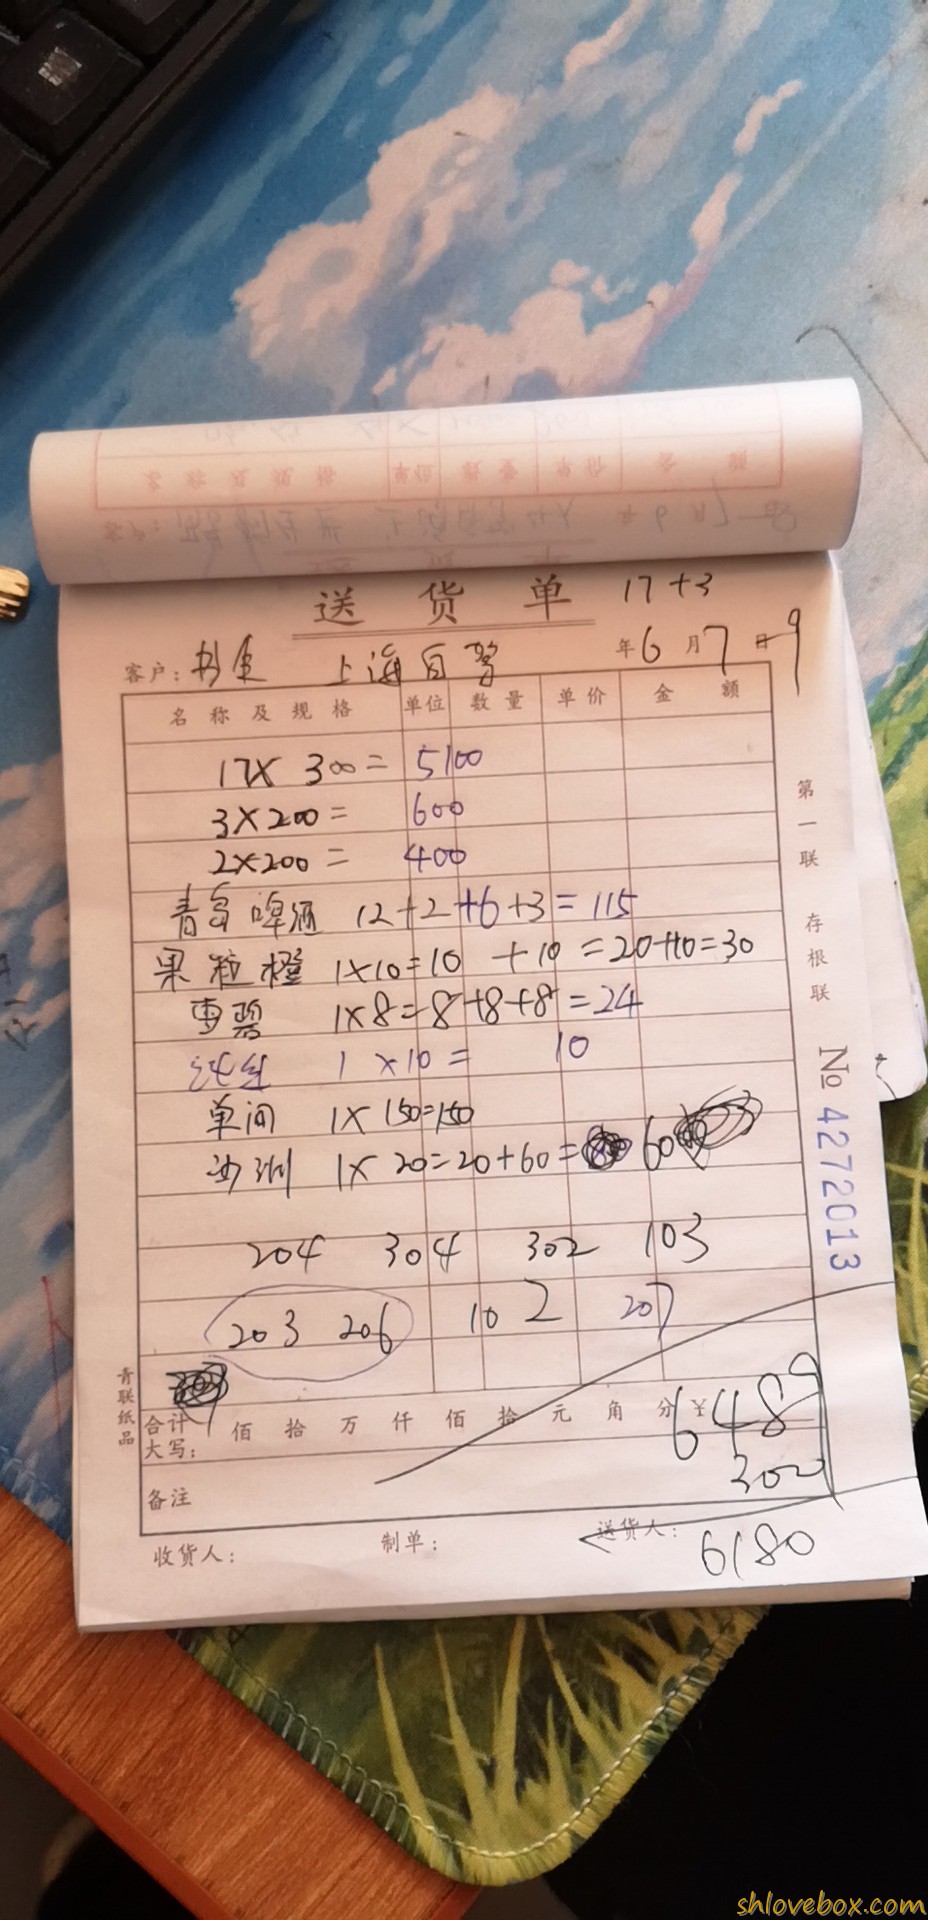 送货单 17+3
客户: 上海自驾 年6月7日-9
名称及规格 单位 数量 单价 金额
17X 300= 5100
3X200= 600
2X200= 400
青岛啤酒 12+2+6+3=115
果粒橙 1X10=10 +10 =20+10=30
雪碧 1X8=8+8+8=24
1 X10= 10
单间 1X150=150
沙洲 1X 20=20+60= 60
204 304 302 103
203 206 102 207
合计
大写: 佰 拾 万 仟 佰 拾 元 角 分 ¥ 6489
300
备注
收货人: 制单: 送货人:
6180
第一联 存根联
No 4272013
青联纸品
shlovebox.com